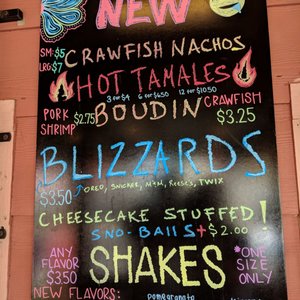 NEW
SM: $5 CRAWFISH NACHOS
LRG $7
HOT TAMALES
3 for $4 6 for $6.50 12 for $10.50
PORK $2.75 BOUDIN CRAWFISH
SHRIMP $3.25
BLIZZARDS
$3.50 OREO, SNICKER, M+M, REESE'S, TWIX
CHEESECAKE STUFFED!
SNO-BALLS + $2.00
ANY FLAVOR $3.50 SHAKES *ONE SIZE ONLY
NEW FLAVORS: pomegranate